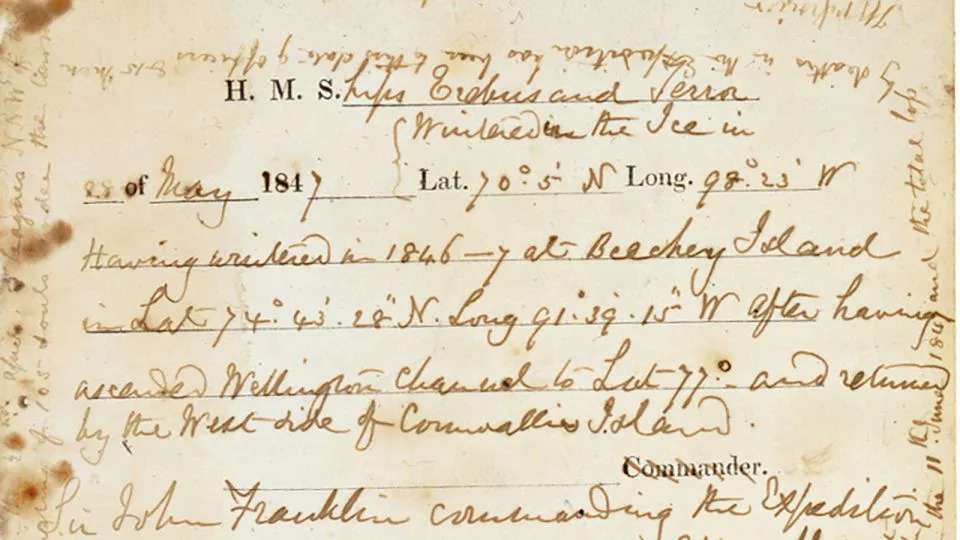 H. M. S. hips Erebus and Terror
Wintered in the Ice in
28 of May 1847 Lat. 70°. 5' N Long. 98°. 23' W
Having wintered in 1846—7 at Beechey Island
in Lat 74°. 43'. 28" N. Long 91°. 39'. 15" W After having
ascended Wellington Channel to Lat 77° - and returned
by the West side of Cornwallis Island.
Commander.
Sir John Franklin commanding the Expedition
by deaths in the Expedition has been to this date 9 officers & 15 men
the 11th June 1847 and the total loss
of 105 souls under the Com